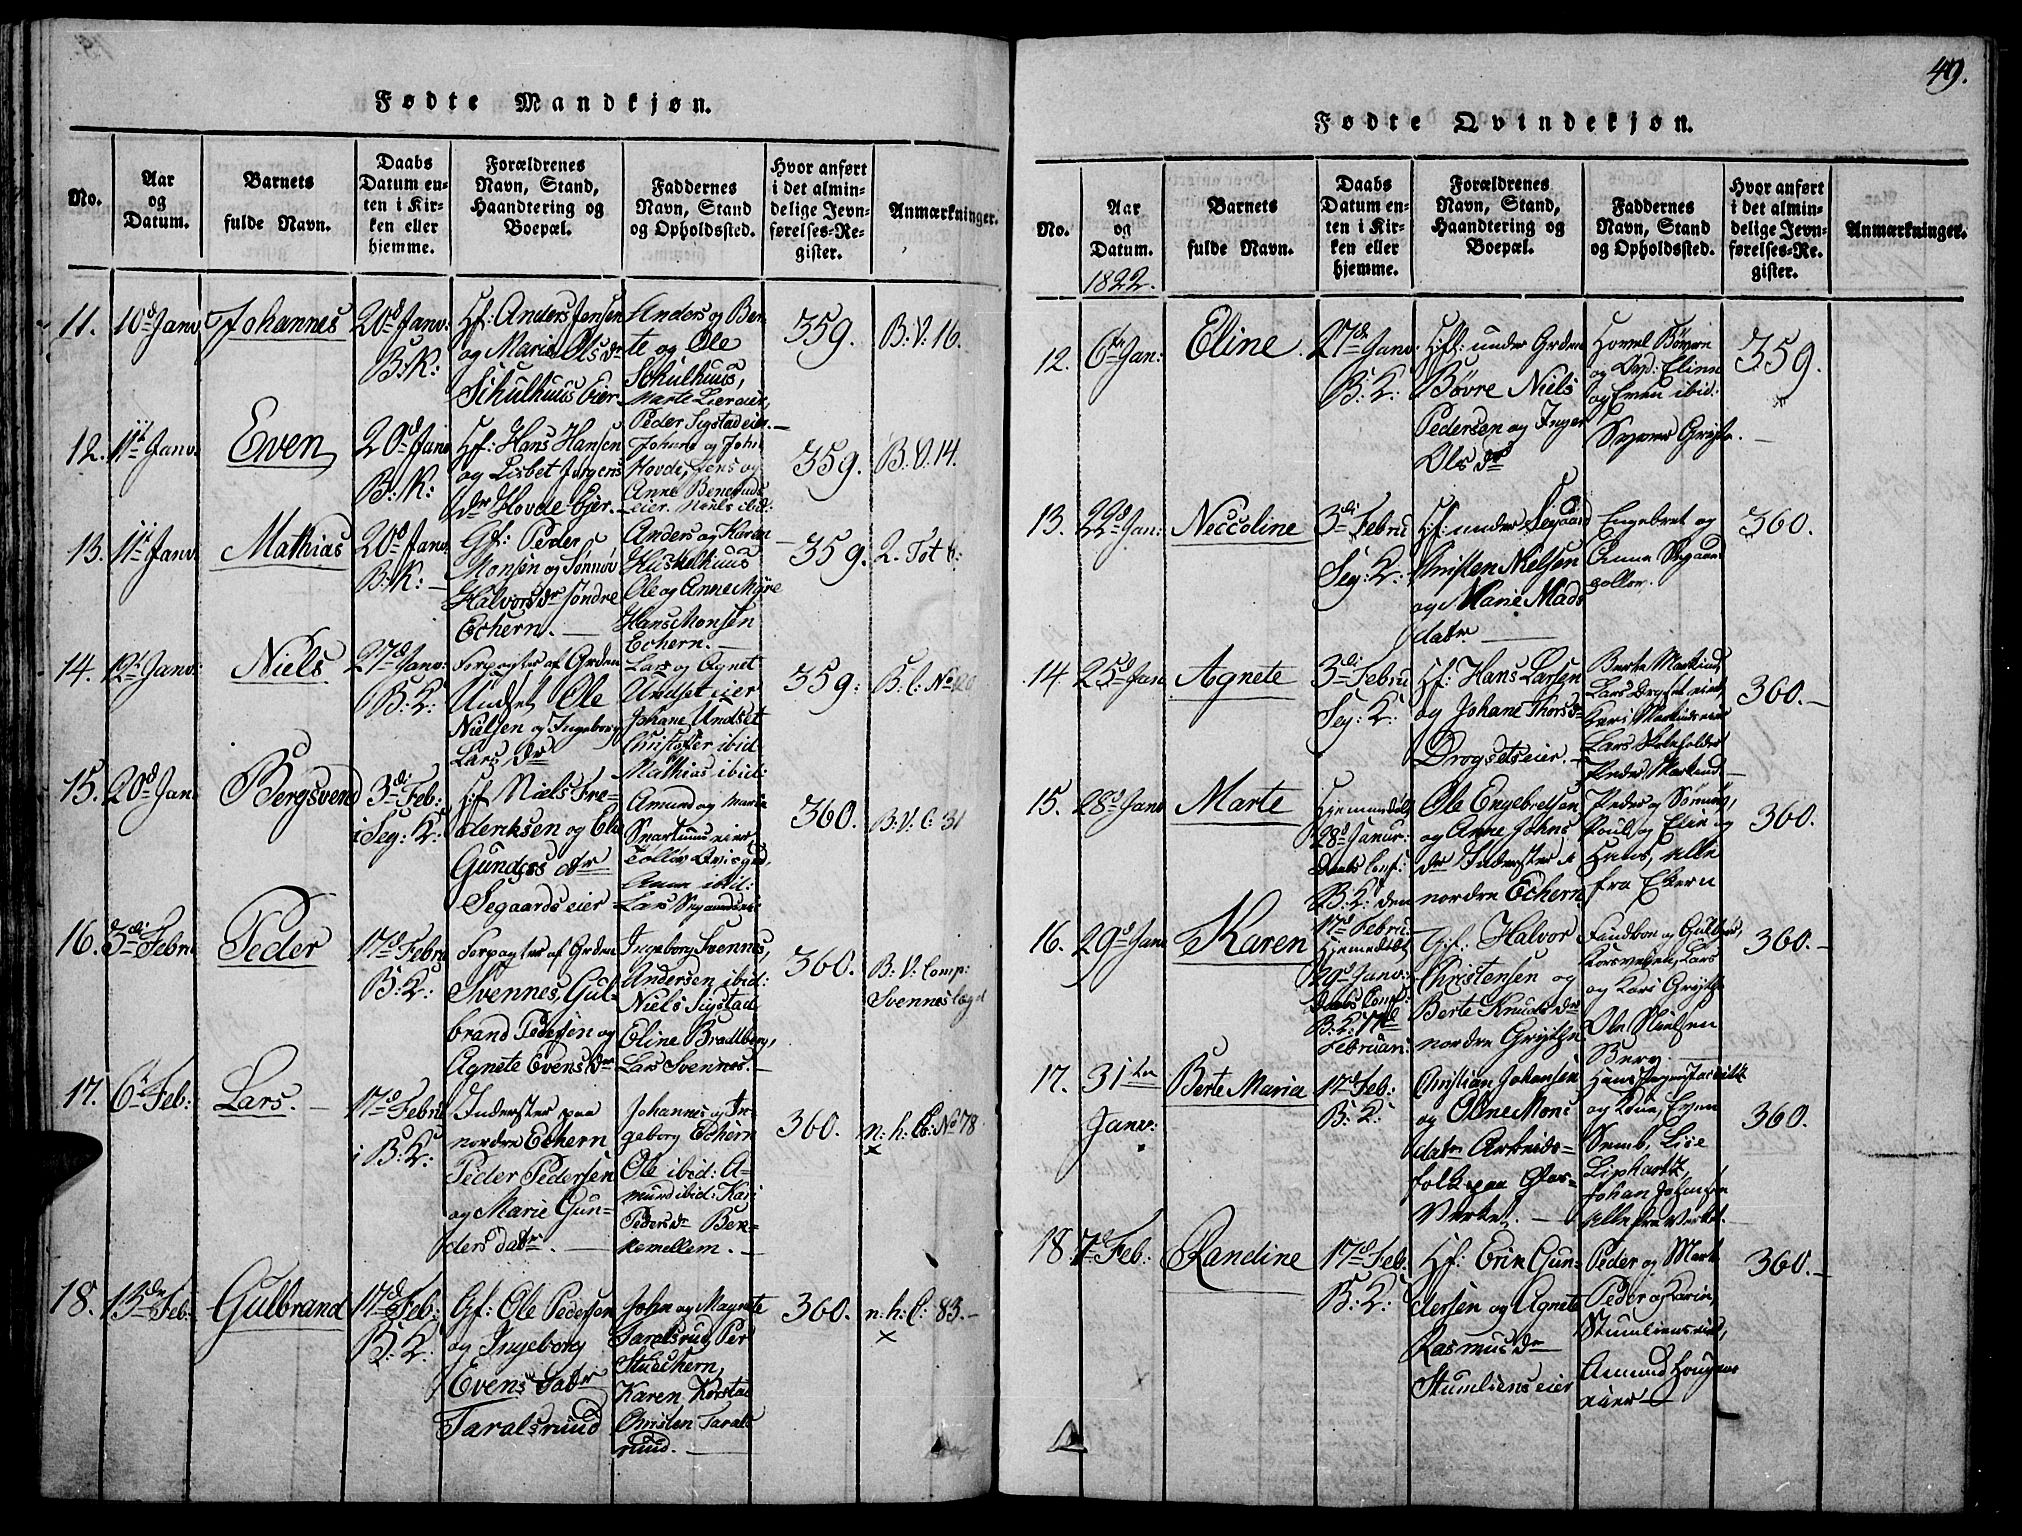 49.
Fødte Mandkjøn.
No.
Aar
og
Datum.
Barnets
fulde Navn.
Daabs
Datum en-
ten i Kir-
ken eller
hjemme.
Forældrenes
Navn, Stand,
Haandtering og
Boepæl.
Faddernes
Navn, Stand
og Opholdssted.
Hvor anført
i det almin-
delige Jevn-
førelses-Re-
gister.
Anmærkninger.
11.
10d Janv.
Johannes
20d Janv:
B: K:
Hf: Anders Jensen
og Marie Olsdr
Schulhuus Eier
Anders og Ber-
te og Ole
Schulhuus,
Marte Liereier,
Peder Sigstadeier.
359.
B: V. 16.
12.
11t Janv.
Even
20d Janv
B: K:
Hf: Hans Hansen
og Lisbet Jørgens
dr Hovde Eier.
Johane og John
Hovde, Jens og
Anne
eier. Niels ibid:
359.
B: V. 14.
13.
11t Janv.
Mathias
20d Janv.
B: K:
Gf: Peder
Monsen og Sønnøv
Halvorsdr søndre
Echern.
Anders og Karen
Huskelhuus
Ole og Anne Myre
Hans Monsen
Echern.
359.
2. Tot
14.
12t Janv:
Niels
27d Janv:
B: K:
Forpagter af Grden
Undset Ole
Nielsen og Ingeborg
Lars dr
Lars og Agnet
Undset eier
Johane Undset
Christoffer ibid.
Mathias ibid:
359.
B. C: No
15.
20d Jan
Bergsvend
3di Feb:
i Seg: K:
Hf Niels Fre-
deriksen og Else
Gunders dtr
Segaards eier
Amund og Marie
eier,
Tollov
Anne ibid:
Lars
360.
B: V. C: 31
16.
3di Febru
Peder
17d Febru
B: K:
Forpagter af Grden
Svennes, Gul-
brand Pedersen og
Agnete Evens dtr
Ingeborg Svennes,
Andersen ibid:
Niels Sigstad
Eline Bradtberg,
Lars Svennes.
360.
B: V: Comp:
Svennes læget
17.
6t Feb:
Lars.
17d Febru
i B: K:
Inderster paa
nordre Echern
Peder Pedersen
og Marie Gun-
ders datr.
Johannes og In-
geborg Echern
Ole ibid: A-
mund ibid: Kari
Pedersdr Ber-
kemellem.
360.
n: h: C: No 78.
x
18.
13de Feb:
Gulbrand
17d Feb:
B: K:
Gf: Ole Pedersen
og Ingeborg
Evens datr
Taralsruud
John og Magnete
Taralsrud, Per
Stuechern,
Karen Korstad
Christen Tarals
ruud.
360.
n: h: C: 83.
x
Fødte Qvindekjøn.
No.
Aar
og
Datum.
1822.
Barnets
fulde Navn.
Daabs
Datum en-
ten i Kir-
ken eller
hjemme.
Forældrenes
Navn, Stand,
Haandtering og
Boepæl.
Faddernes
Navn, Stand
og Opholdssted.
Hvor anført
i det almin-
delige Jevn-
førelses-Re-
gister.
Anmærkninger.
12.
6te Jan:
Eline
27de Janv
B: K:
Hf: under Grden
Bøvre Niels
Pedersen og Inger
Ols dr
Hovel Bøvre
og Drd: Eline
og Even ibid:
359.
13.
22d Jan:
Neccoline
3di Febru
Seg: K:
Hf: under Segaard
Christen Nielsen
og Marie Mads
datr
Engebret og
Anne
360.
14.
25d Jan
Agnete
3di Febru
Seg: K:
Hf: Hans Larsen
og Johane Thorsdr
Drogsetseier.
Berte
Lars Drogset eier
Kari
Lars
Peder
360.
15.
28d Janv
Marte
Hjemmedøbt
28d Janur:
Daabs Conf:
B: K: den
17d Febru
Ole Engebretsen
og Anne Johns
dr Inderster
nordre Echern
Peder og
Poul og Elie og
Hans, alle
fra Ekern
360.
16.
29d Janv
Karen
Hjemedøbt
29d Janv:
Daabs Conf:
B: K: 17d
Februari
Gif: Halvor
Christensen og
Berte Knuds dr
nordre
og
Korsveien, Lars
og Kari
Ole Nielsen
Berg.
360.
17.
31te
Janv:
Berte Maria
17d Feb:
B: K:
Christian Johansen
og Oline Mons
datr Arbeids-
folk paa Glas-
Verket.
Hans
og Kone, Even
Semb, Lise
Liphartt,
Johan Johansen
alle fra Verket.
360.
18
7d Feb:
Randine
17d Feb.
B: K:
Hf: Erik Gun-
dersen og Agnete
Rasmus dr
Stumliens eier
Peder og Marte
Peder og Karin,
Stumlienseier,
Amund Hougens
eier
360.